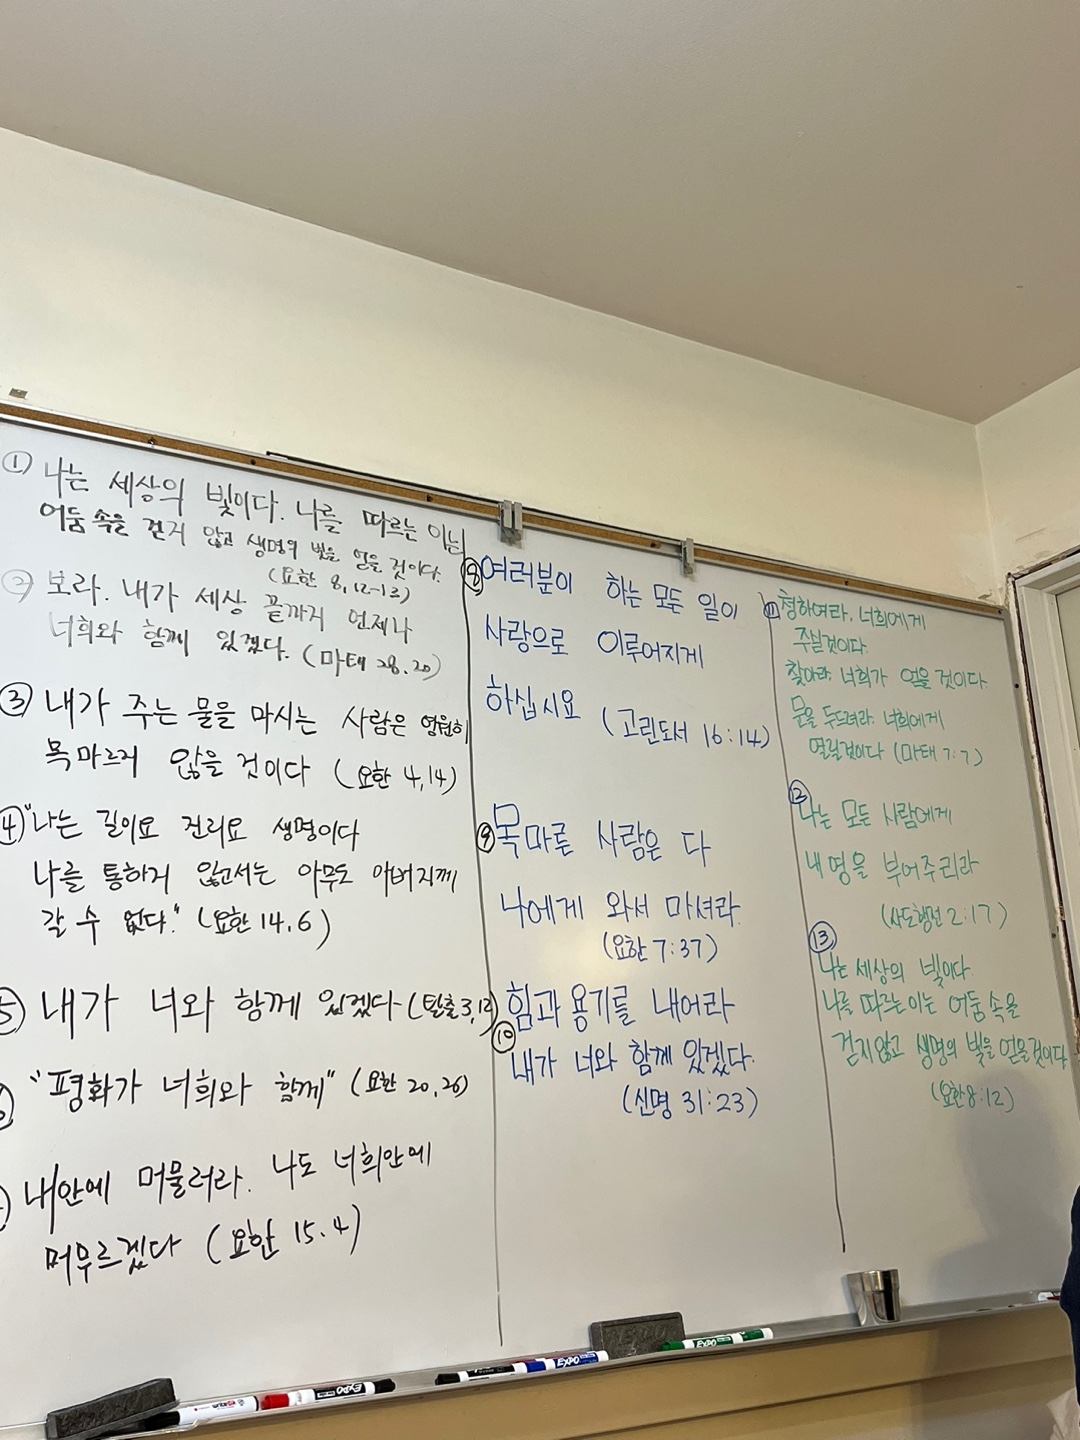 ① 나는 세상의 빛이다. 나를 따르는 이는
어둠 속을 걷지 않고 생명의 빛을 얻을 것이다.
(요한 8,12-13)
② 보라. 내가 세상 끝까지 언제나
너희와 함께 있겠다. (마태 28.20)
③ 내가 주는 물을 마시는 사람은 영원히
목마르지 않을 것이다 (요한 4,14)
④ "나는 길이요 진리요 생명이다
나를 통하지 않고서는 아무도 아버지께
갈 수 없다." (요한 14.6)
⑤ 내가 너와 함께 있겠다-(탈출 3,12)
⑥ "평화가 너희와 함께" (요한 20,26)
내 안에 머물러라. 나도 너희안에
머무르겠다 (요한 15.4)
⑧ 여러분이 하는 모든 일이
사랑으로 이루어지게
하십시요 (고린도서 16:14)
⑨ 목마른 사람은 다
나에게 와서 마셔라.
(요한 7:37)
⑩ 힘과 용기를 내어라
내가 너와 함께 있겠다.
(신명 31:23)
⑪ 청하여라, 너희에게
주실것이다.
찾아라. 너희가 얻을 것이다.
문을 두드려라. 너희에게
열릴것이다 (마태 7:7)
⑫ 나는 모든 사람에게
내 영을 부어주리라
(사도행전 2:17)
⑬ 나는 세상의 빛이다.
나를 따르는 이는 어둠 속을
걷지 않고 생명의 빛을 얻을것이다
(요한 8:12)
EXPO
EXPO
EXPO
EXPO